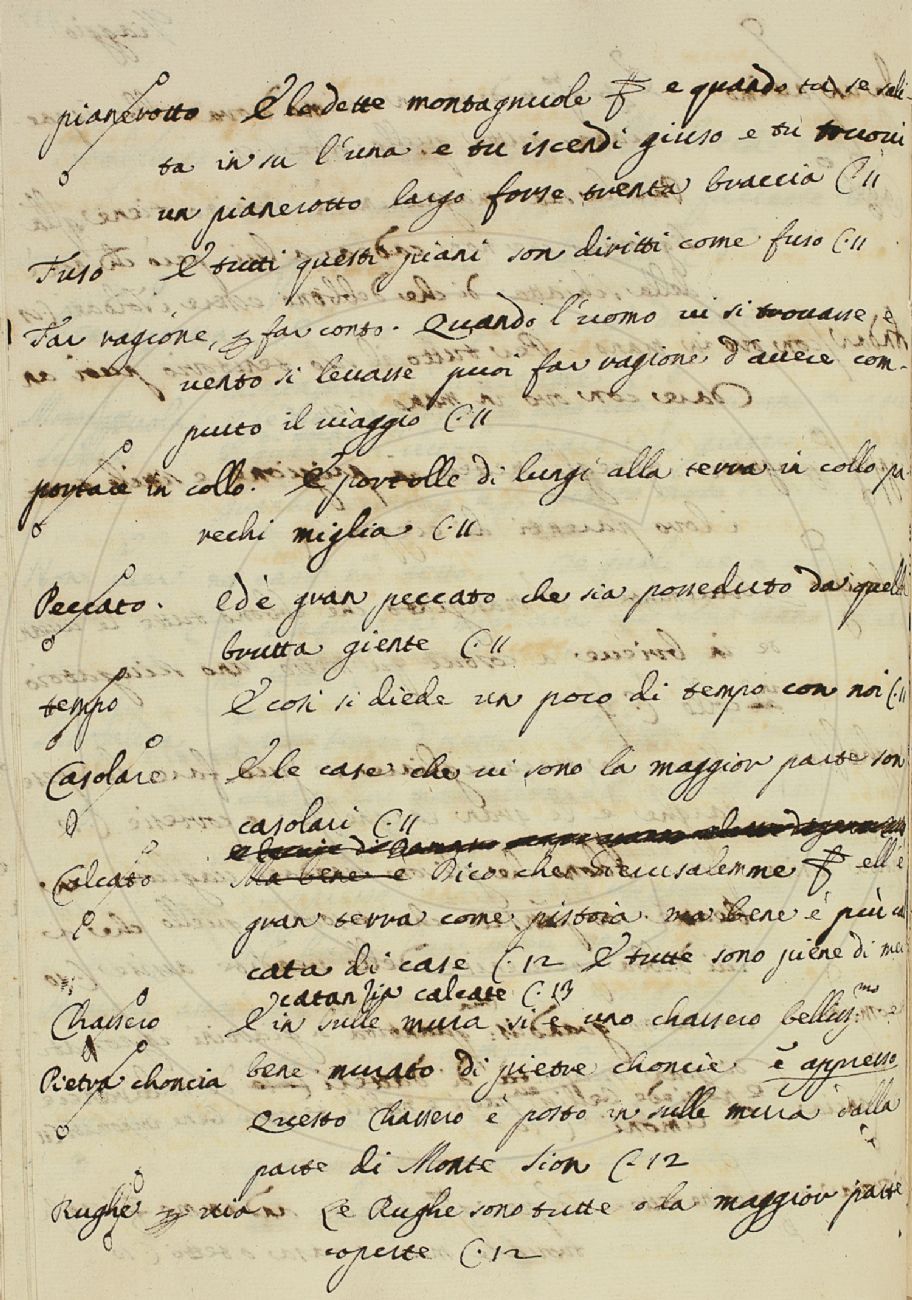 pianerotto E le dette montagnuole e quando tu se sali-
ta in su l'una e tu iscendi giuso e tu truovi
un pianerotto largo forse trenta braccia C. 11
Fuso E tutti questi piani son diritti come fuso C. 11
Far ragione, far conto. Quando l'uomo vi si trovasse, e
vento si levasse puoi far ragione d'avere com-
piuto il viaggio C. 11
portare in collo. E portolle di lungi alla terra in collo pa
rechi miglia C. 11
Peccato. Ed è gran peccato che sia posseduto da quella
brutta giente C. 11
tempo E così si diede un poco di tempo con noi C. 11
Casolare E le case che vi sono la maggior parte son
casolari C. 11
Calcato Ma bene e Dico che Gierusalemme ell'è
gran terra come pistoia ma bene è più cal
cata di case C. 12 E tutte sono piene di mer
catanzia calcate C. 13
Chassero E in sulle mura si è uno chassero bellissmo e
Pietra choncia bene murato di pietre choncie e appresso
Questo Chassero è posto in sulle mura dalla
parte di Monte Sion C. 12
Rughe via Le Rughe sono tutte o la maggior parte
coperte C. 12